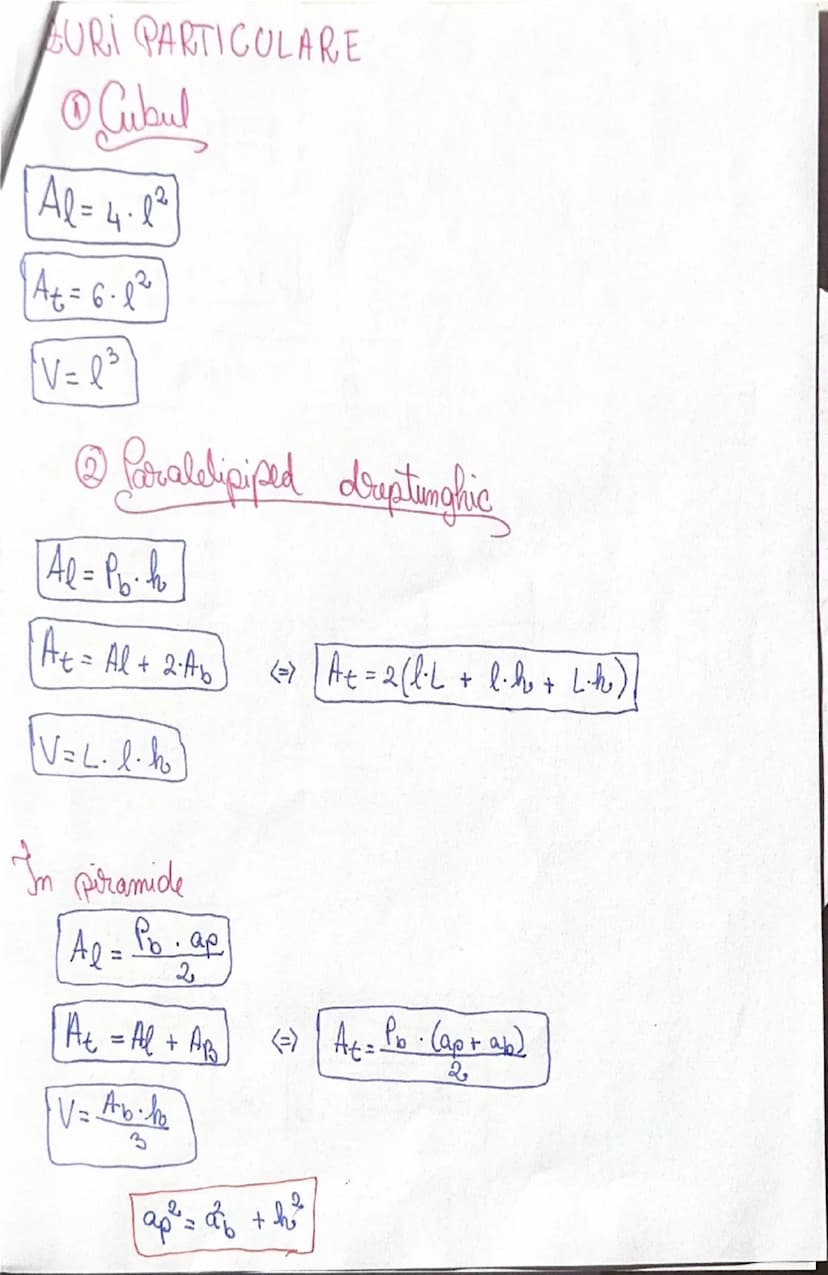 ZURI PARTICULARE
① Cubul
Al = 4 · l²
At = 6 · l²
V = l³
② Paralelipiped dreptunghic
Al = Pb · h
At = Al + 2·Ab (=) At = 2(l·L + l·h + L·h)
V = L · l · h
In piramide
Al = Pb · ap / 2
At = Al + AB (=) At = Pb · (ap + ab) / 2
V = Ab · h / 3
ap² = a²b + h²